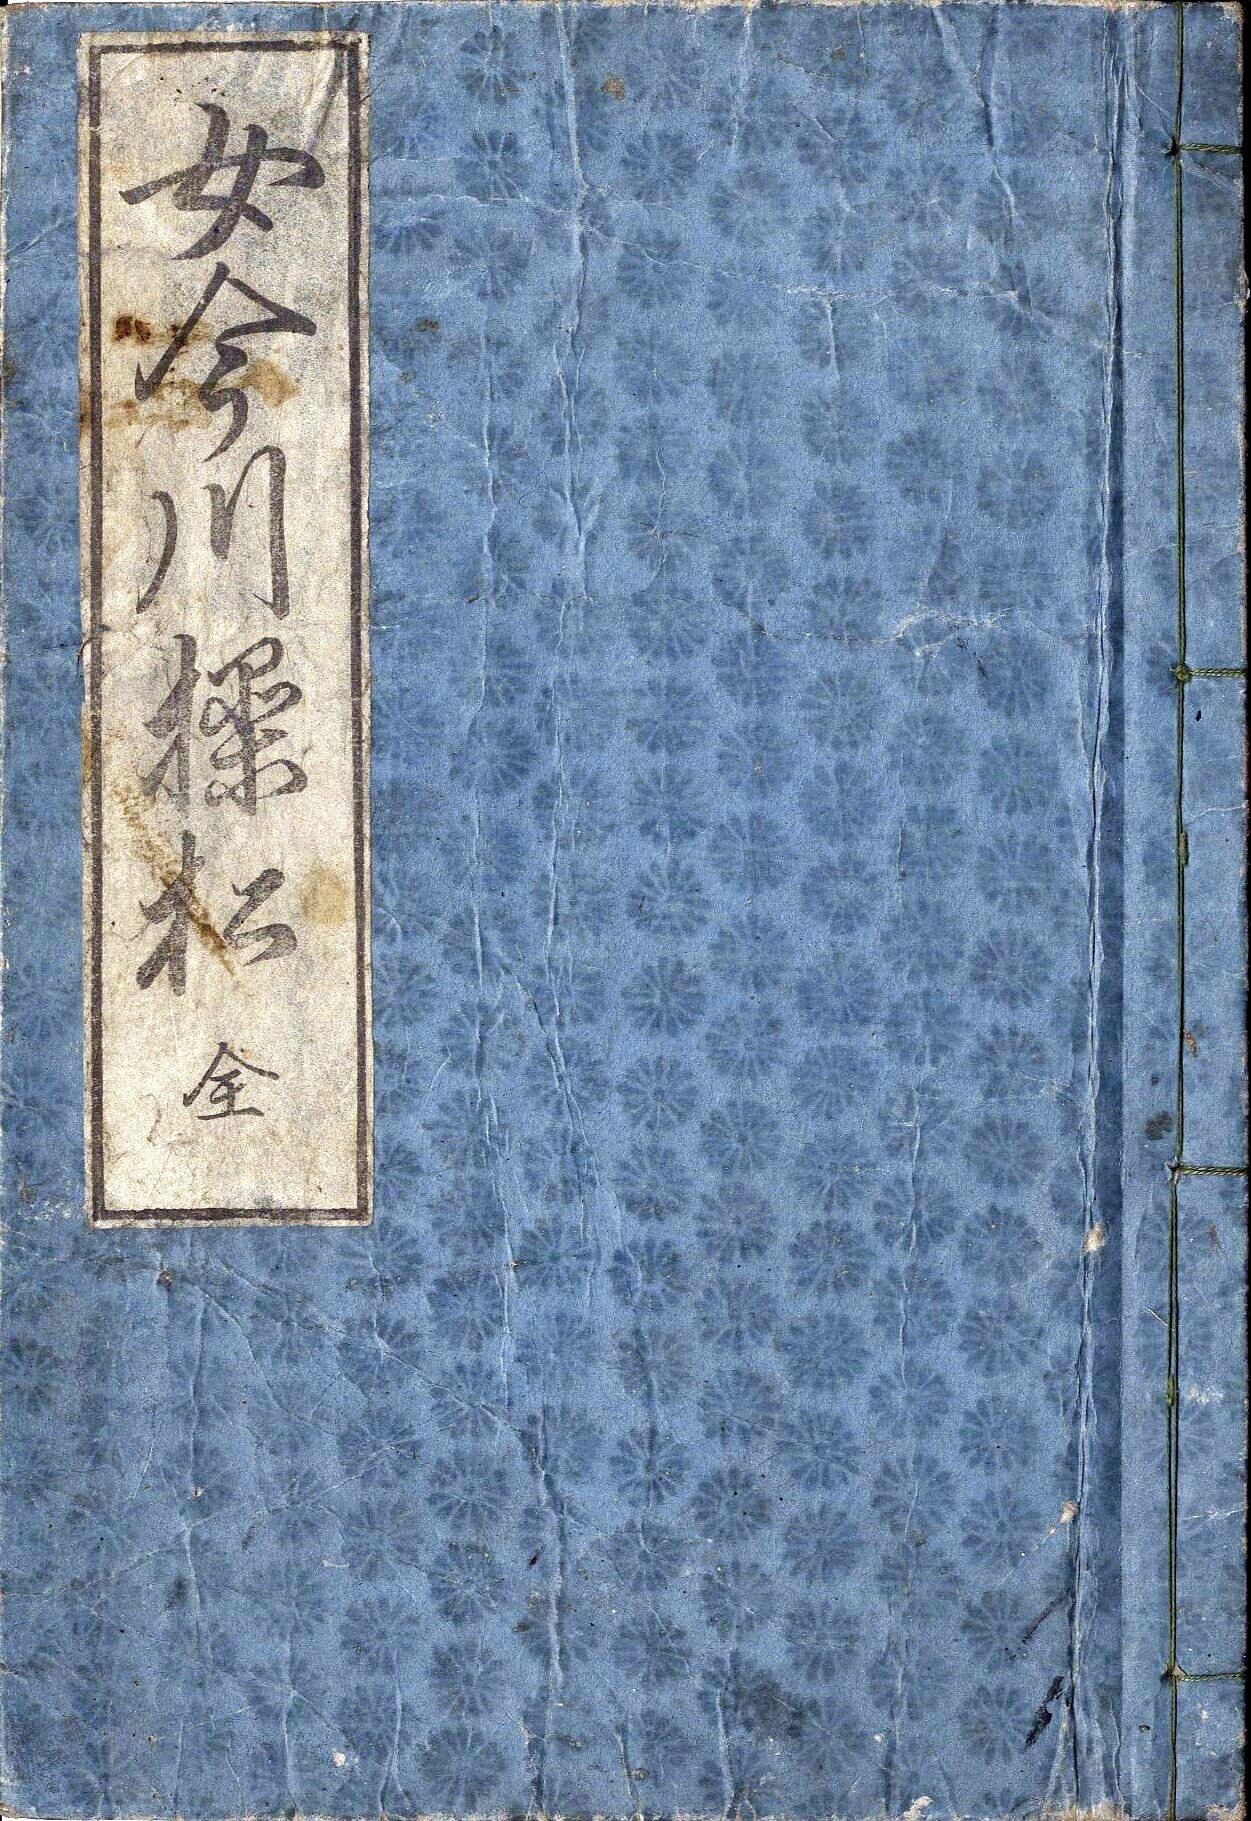 女今川操松 全